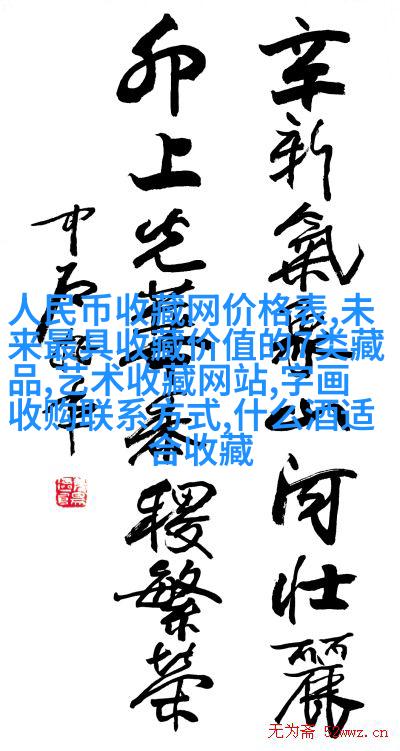 辛新氣象山河壯麗
卯上光華黍稷繁荣
人民币收藏网价格表,未
来最具收藏价值的7类藏
品,艺术收藏网站,字画
收购联系方式,什么酒适
合收藏
无为斋 52wwz.cn